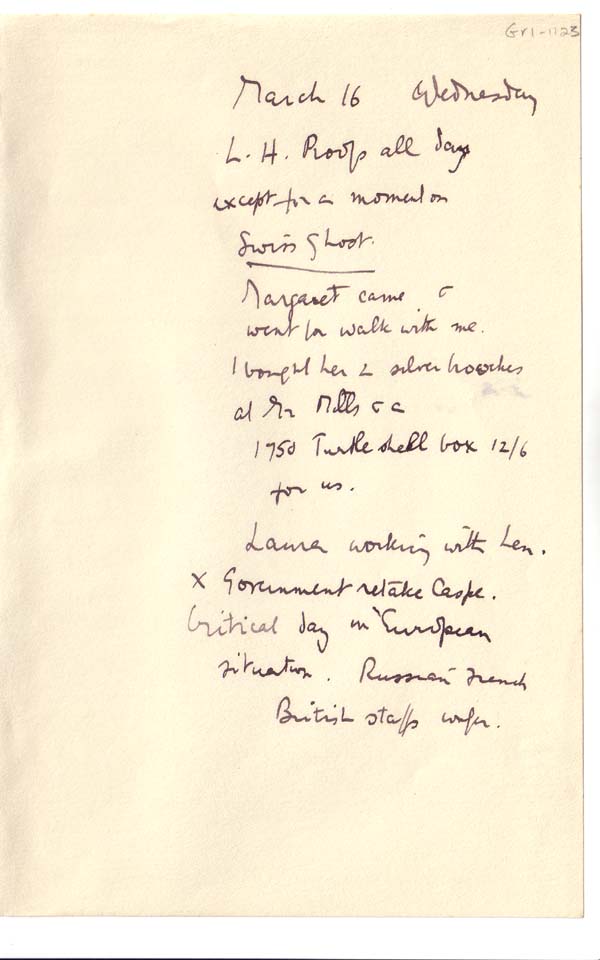 Gr1-1123
March 16 Wednesday
L. H. Proofs all day
except for a moment on
Swiss Ghost.
Margaret came &
went for walk with me.
I bought her 2 silver brooches
at Mr Mills & a
1750 Turtle shell box 12/6
for us.
Laura working with Len.
x Government retake Caspe.
Critical day in European
situation. Russian French
British staffs confer.